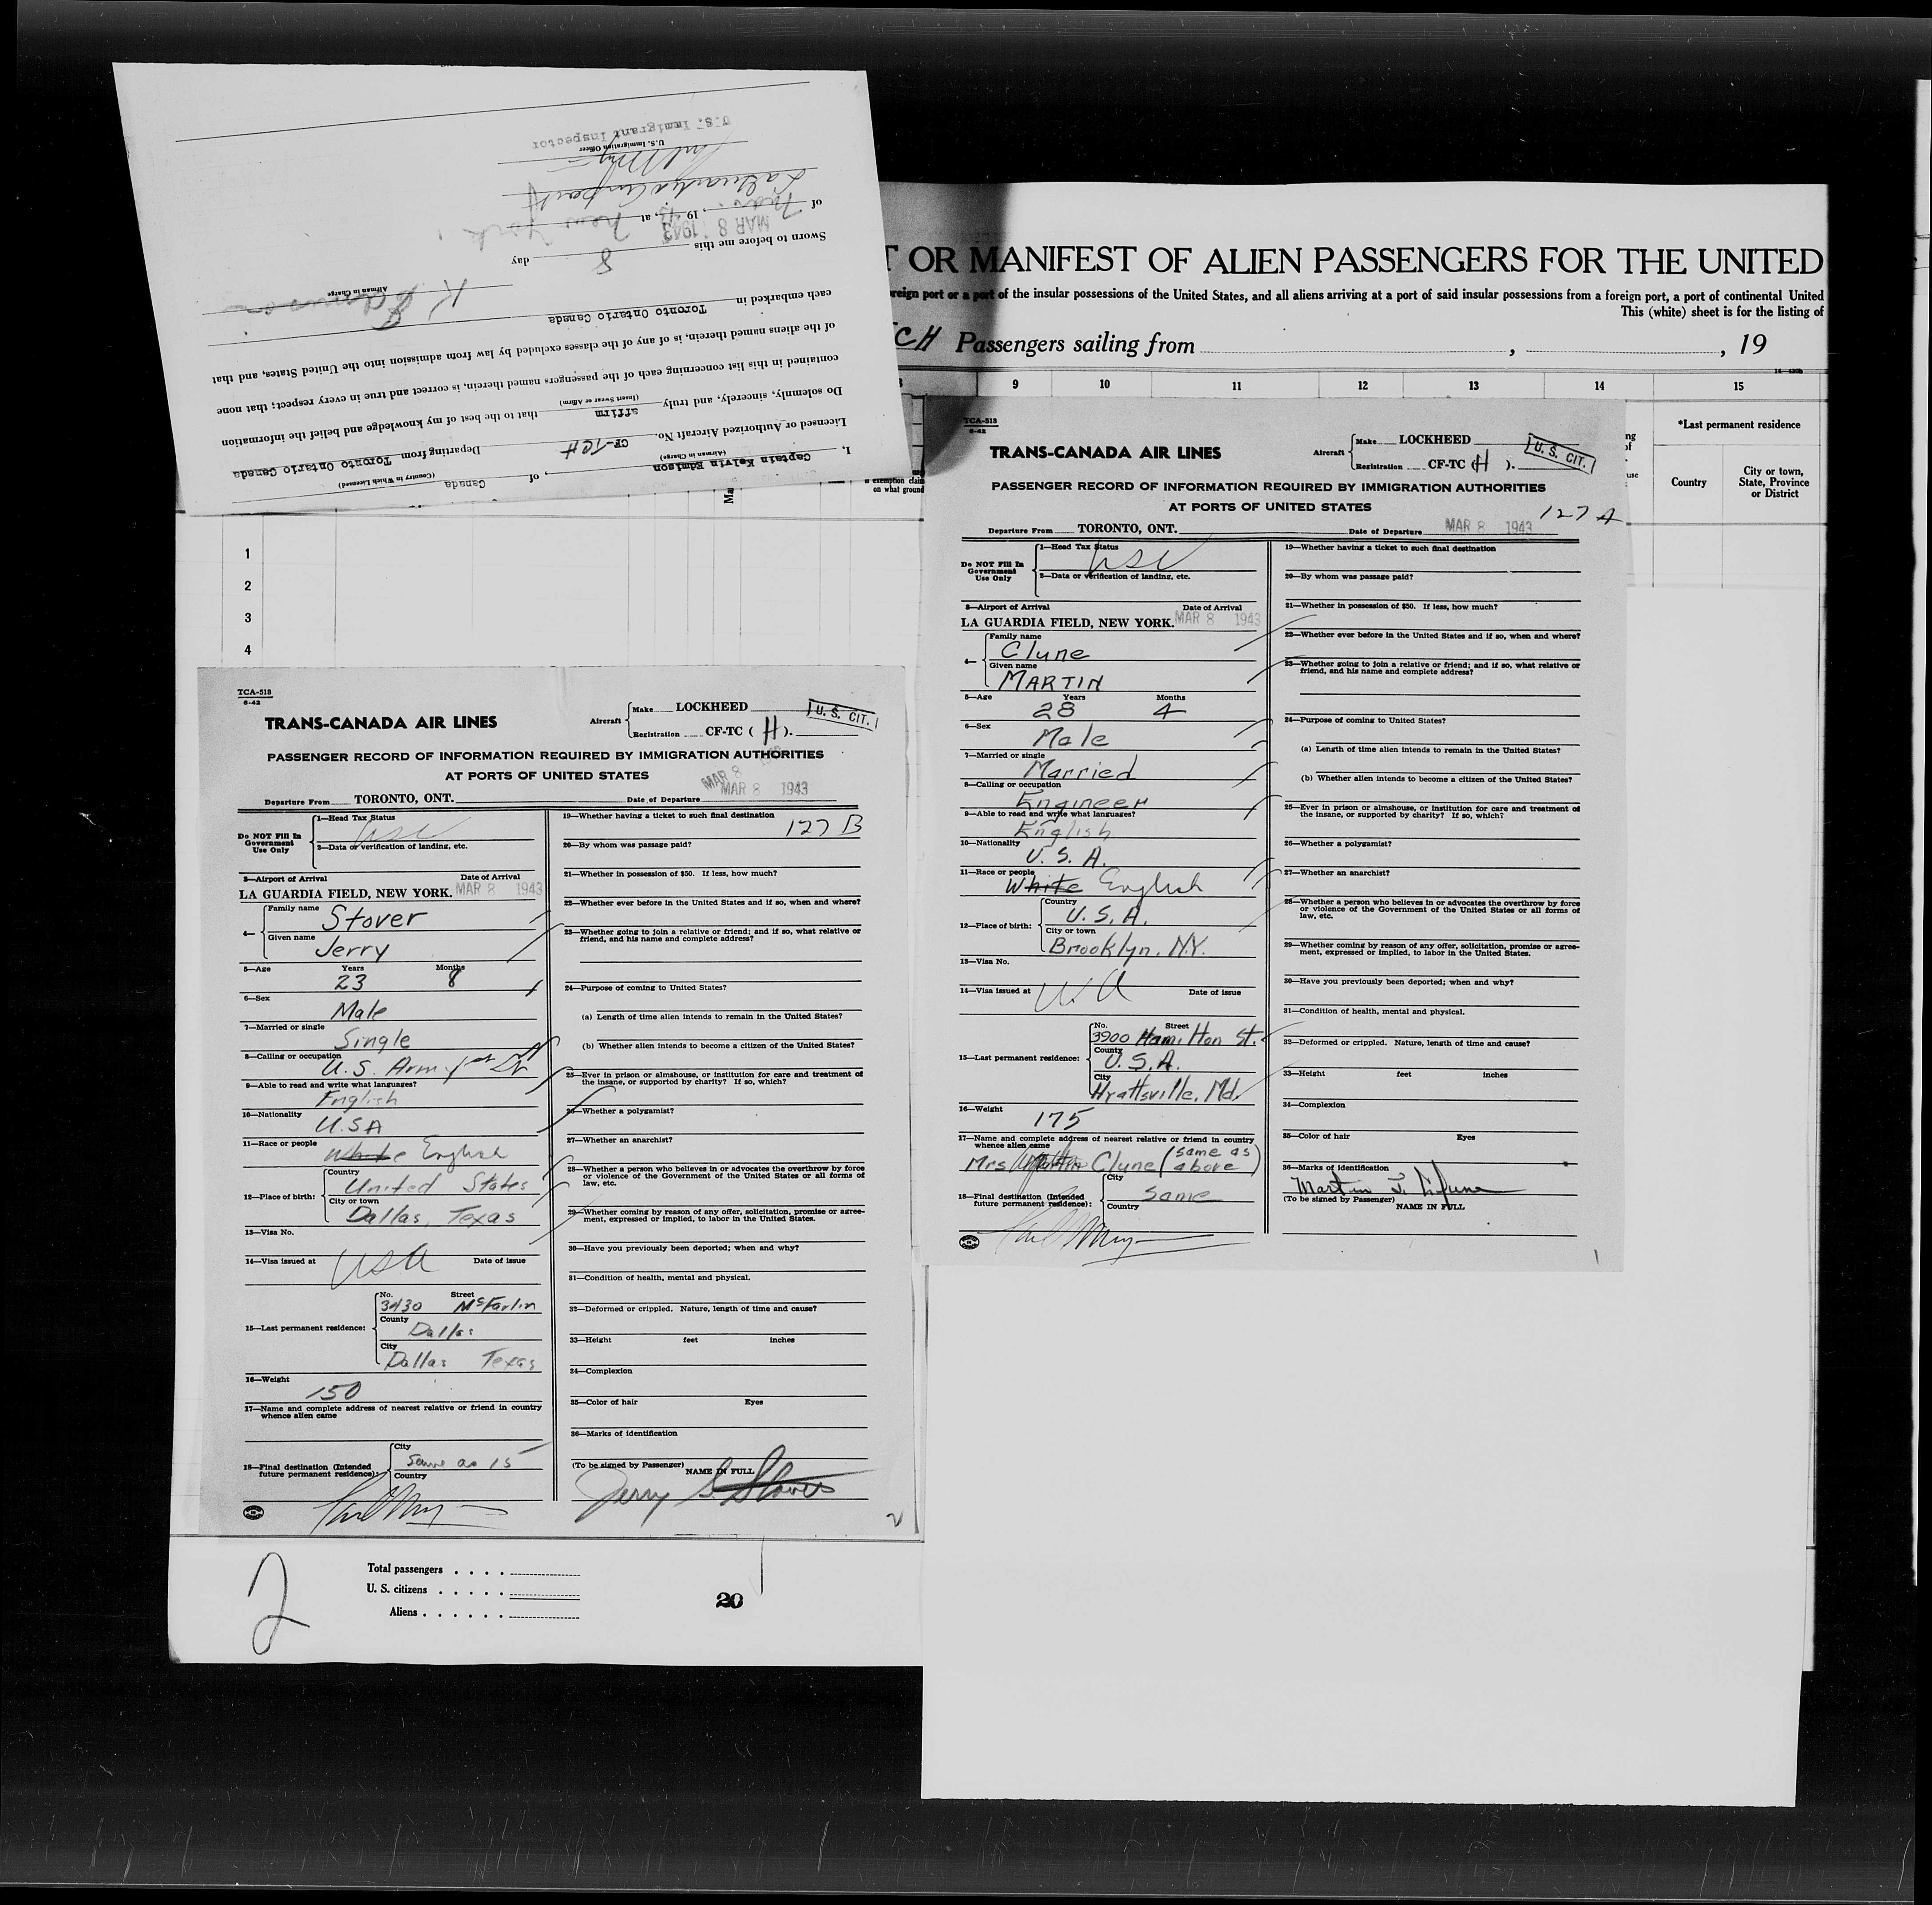 I, Captain Kelvin Edmison, of Canada
(Airman in Charge) (Country in Which Licensed)
Licensed or Authorized Aircraft No. CF-TCH Departing from Toronto Ontario Canada
Do solemnly, sincerely, and truly affirm that to the best of my knowledge and belief the information
(Insert Swear or Affirm)
contained in this list concerning each of the passengers named therein, is correct and true in every respect; that none
of the aliens named therein, is of any of the classes excluded by law from admission into the United States, and that
each embarked in Toronto Ontario Canada
K Edmison
Airman in Charge
Sworn to before me this 8 day
of Mar., 1943, at New York
MAR 8 1943
LaGuardia Airport
U.S. Immigration Officer
U.S. Immigrant Inspector
T OR MANIFEST OF ALIEN PASSENGERS FOR THE UNITED
reign port or a port of the insular possessions of the United States, and all aliens arriving at a port of said insular possessions from a foreign port, a port of continental United
This (white) sheet is for the listing of
CH Passengers sailing from , , 19
9 10 11 12 13 14 15
*Last permanent residence
Country
City or town,
State, Province
or District
exemption claim
on what ground
1
2
3
4
TCA-518
6-42
TRANS-CANADA AIR LINES
Aircraft Make LOCKHEED
Registration CF-TC (H).
U. S. CIT.
PASSENGER RECORD OF INFORMATION REQUIRED BY IMMIGRATION AUTHORITIES
AT PORTS OF UNITED STATES
MAR 8
Departure From TORONTO, ONT. Date of Departure MAR 8 1943
Do NOT Fill In
Government
Use Only
1—Head Tax Status
USC
2—Data or verification of landing, etc.
3—Airport of Arrival Date of Arrival
LA GUARDIA FIELD, NEW YORK. MAR 8 1943
4— Family name Stover
Given name Jerry
5—Age Years 23 Months 8
6—Sex Male
7—Married or single Single
8—Calling or occupation U.S. Army 1st Lt
9—Able to read and write what languages? English
10—Nationality U.S.A
11—Race or people White English
12—Place of birth: Country United States
City or town Dallas, Texas
13—Visa No.
14—Visa issued at USA Date of issue
15—Last permanent residence: No. 3430 Street McFarlin
County Dallas
City Dallas Texas
16—Weight 150
17—Name and complete address of nearest relative or friend in country
whence alien came
18—Final destination (Intended
future permanent residence): City Same as 15
Country
19—Whether having a ticket to such final destination
127 B
20—By whom was passage paid?
21—Whether in possession of $50. If less, how much?
22—Whether ever before in the United States and if so, when and where?
23—Whether going to join a relative or friend; and if so, what relative or
friend, and his name and complete address?
24—Purpose of coming to United States?
(a) Length of time alien intends to remain in the United States?
(b) Whether alien intends to become a citizen of the United States?
25—Ever in prison or almshouse, or institution for care and treatment of
the insane, or supported by charity? If so, which?
26—Whether a polygamist?
27—Whether an anarchist?
28—Whether a person who believes in or advocates the overthrow by force
or violence of the Government of the United States or all forms of
law, etc.
29—Whether coming by reason of any offer, solicitation, promise or agree-
ment, expressed or implied, to labor in the United States.
30—Have you previously been deported; when and why?
31—Condition of health, mental and physical.
32—Deformed or crippled. Nature, length of time and cause?
33—Height feet inches
34—Complexion
35—Color of hair Eyes
36—Marks of identification
(To be signed by Passenger) NAME IN FULL
Jerry S. Stover
2
TCA-518
6-42
TRANS-CANADA AIR LINES
Aircraft Make LOCKHEED
Registration CF-TC (H).
U. S. CIT.
PASSENGER RECORD OF INFORMATION REQUIRED BY IMMIGRATION AUTHORITIES
AT PORTS OF UNITED STATES
127 A
Departure From TORONTO, ONT. Date of Departure MAR 8 1943
Do NOT Fill In
Government
Use Only
1—Head Tax Status
USC
2—Data or verification of landing, etc.
3—Airport of Arrival Date of Arrival
LA GUARDIA FIELD, NEW YORK. MAR 8 1943
4— Family name Clune
Given name MARTIN
5—Age Years 28 Months 4
6—Sex Male
7—Married or single Married
8—Calling or occupation Engineer
9—Able to read and write what languages? English
10—Nationality U.S.A.
11—Race or people White English
12—Place of birth: Country U.S.A.
City or town Brooklyn, N.Y.
13—Visa No.
14—Visa issued at Date of issue
15—Last permanent residence: No. 3900 Street Hamilton St.
County U.S.A.
City Hyattsville, Md.
16—Weight 175
17—Name and complete address of nearest relative or friend in country
whence alien came
Mrs Martin Clune (same as above)
18—Final destination (Intended
future permanent residence): City Same
Country
19—Whether having a ticket to such final destination
20—By whom was passage paid?
21—Whether in possession of $50. If less, how much?
22—Whether ever before in the United States and if so, when and where?
23—Whether going to join a relative or friend; and if so, what relative or
friend, and his name and complete address?
24—Purpose of coming to United States?
(a) Length of time alien intends to remain in the United States?
(b) Whether alien intends to become a citizen of the United States?
25—Ever in prison or almshouse, or institution for care and treatment of
the insane, or supported by charity? If so, which?
26—Whether a polygamist?
27—Whether an anarchist?
28—Whether a person who believes in or advocates the overthrow by force
or violence of the Government of the United States or all forms of
law, etc.
29—Whether coming by reason of any offer, solicitation, promise or agree-
ment, expressed or implied, to labor in the United States.
30—Have you previously been deported; when and why?
31—Condition of health, mental and physical.
32—Deformed or crippled. Nature, length of time and cause?
33—Height feet inches
34—Complexion
35—Color of hair Eyes
36—Marks of identification
Martin J. Clune
(To be signed by Passenger) NAME IN FULL
1
2
Total passengers
U. S. citizens
Aliens
20